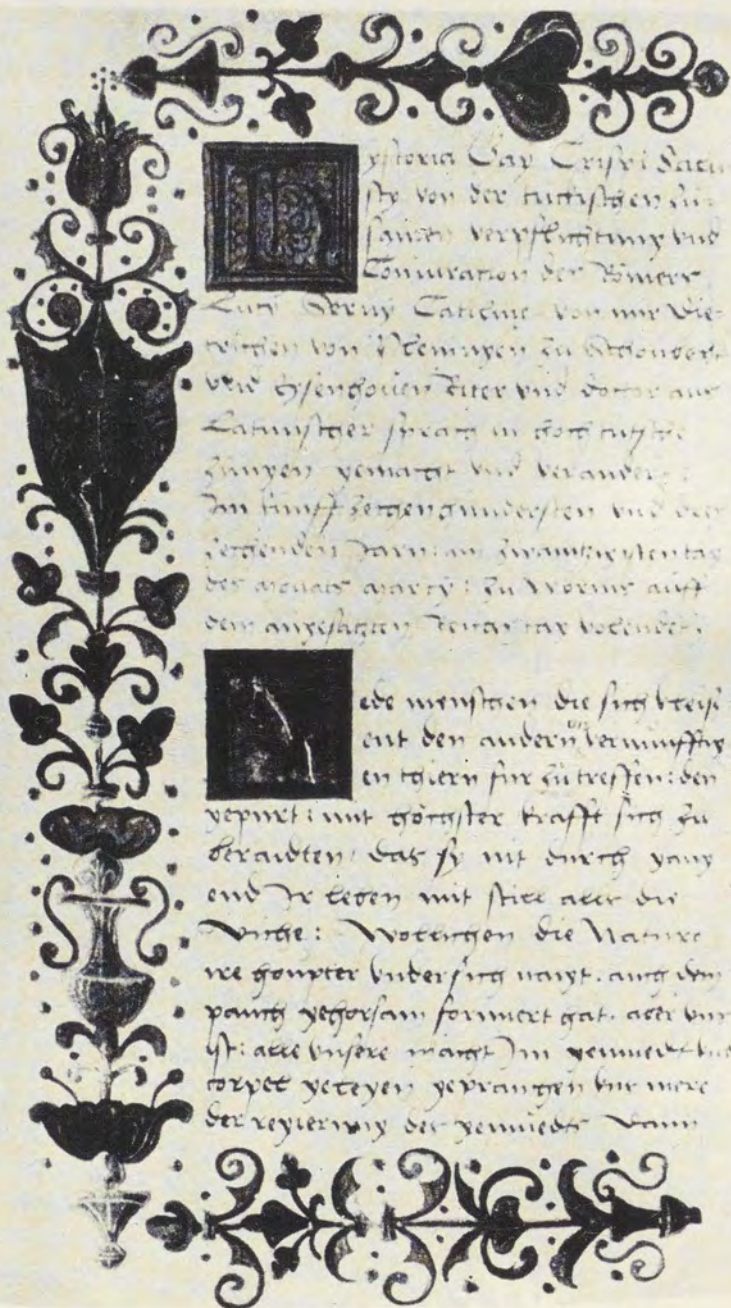 Hystoria Gay Crispi: Salu
sty von der tuckischen zu
samen verpflichtung vnd
Coniuration des Römers
Lucy Sergy Catiline von mir Die
trichen von Plenningen zu Schonberg
vnd Eysenhouen Ritter vnd doctor aus
Latinischer sprach in hoch tutsche
zungen gemacht vnd verandert:
Im funffzechenhundersten vnd drei
zechenden Jarn: am zwantzigsten tag
des monats marcy: zu Worms auff
dem angesatzten Reichstag volendet.
ede menschen die sich vleiss
ent den andern vnvernunfftig
en thiern fur zu treffen: den
gepurt: mit höchster krafft sich zu
beraidten das sy nit durch gang
end Ir leben mit still alls die
viche: Wölichen die Nature
ire houpter vndersich naigt. auch dem
pauch gehorsam formiert hat. aber vnns
ist: alle vnsere macht Im gemuedt vnd
corpel gelegen geprauchen vnns mere
der regierung des gemuedts Dann